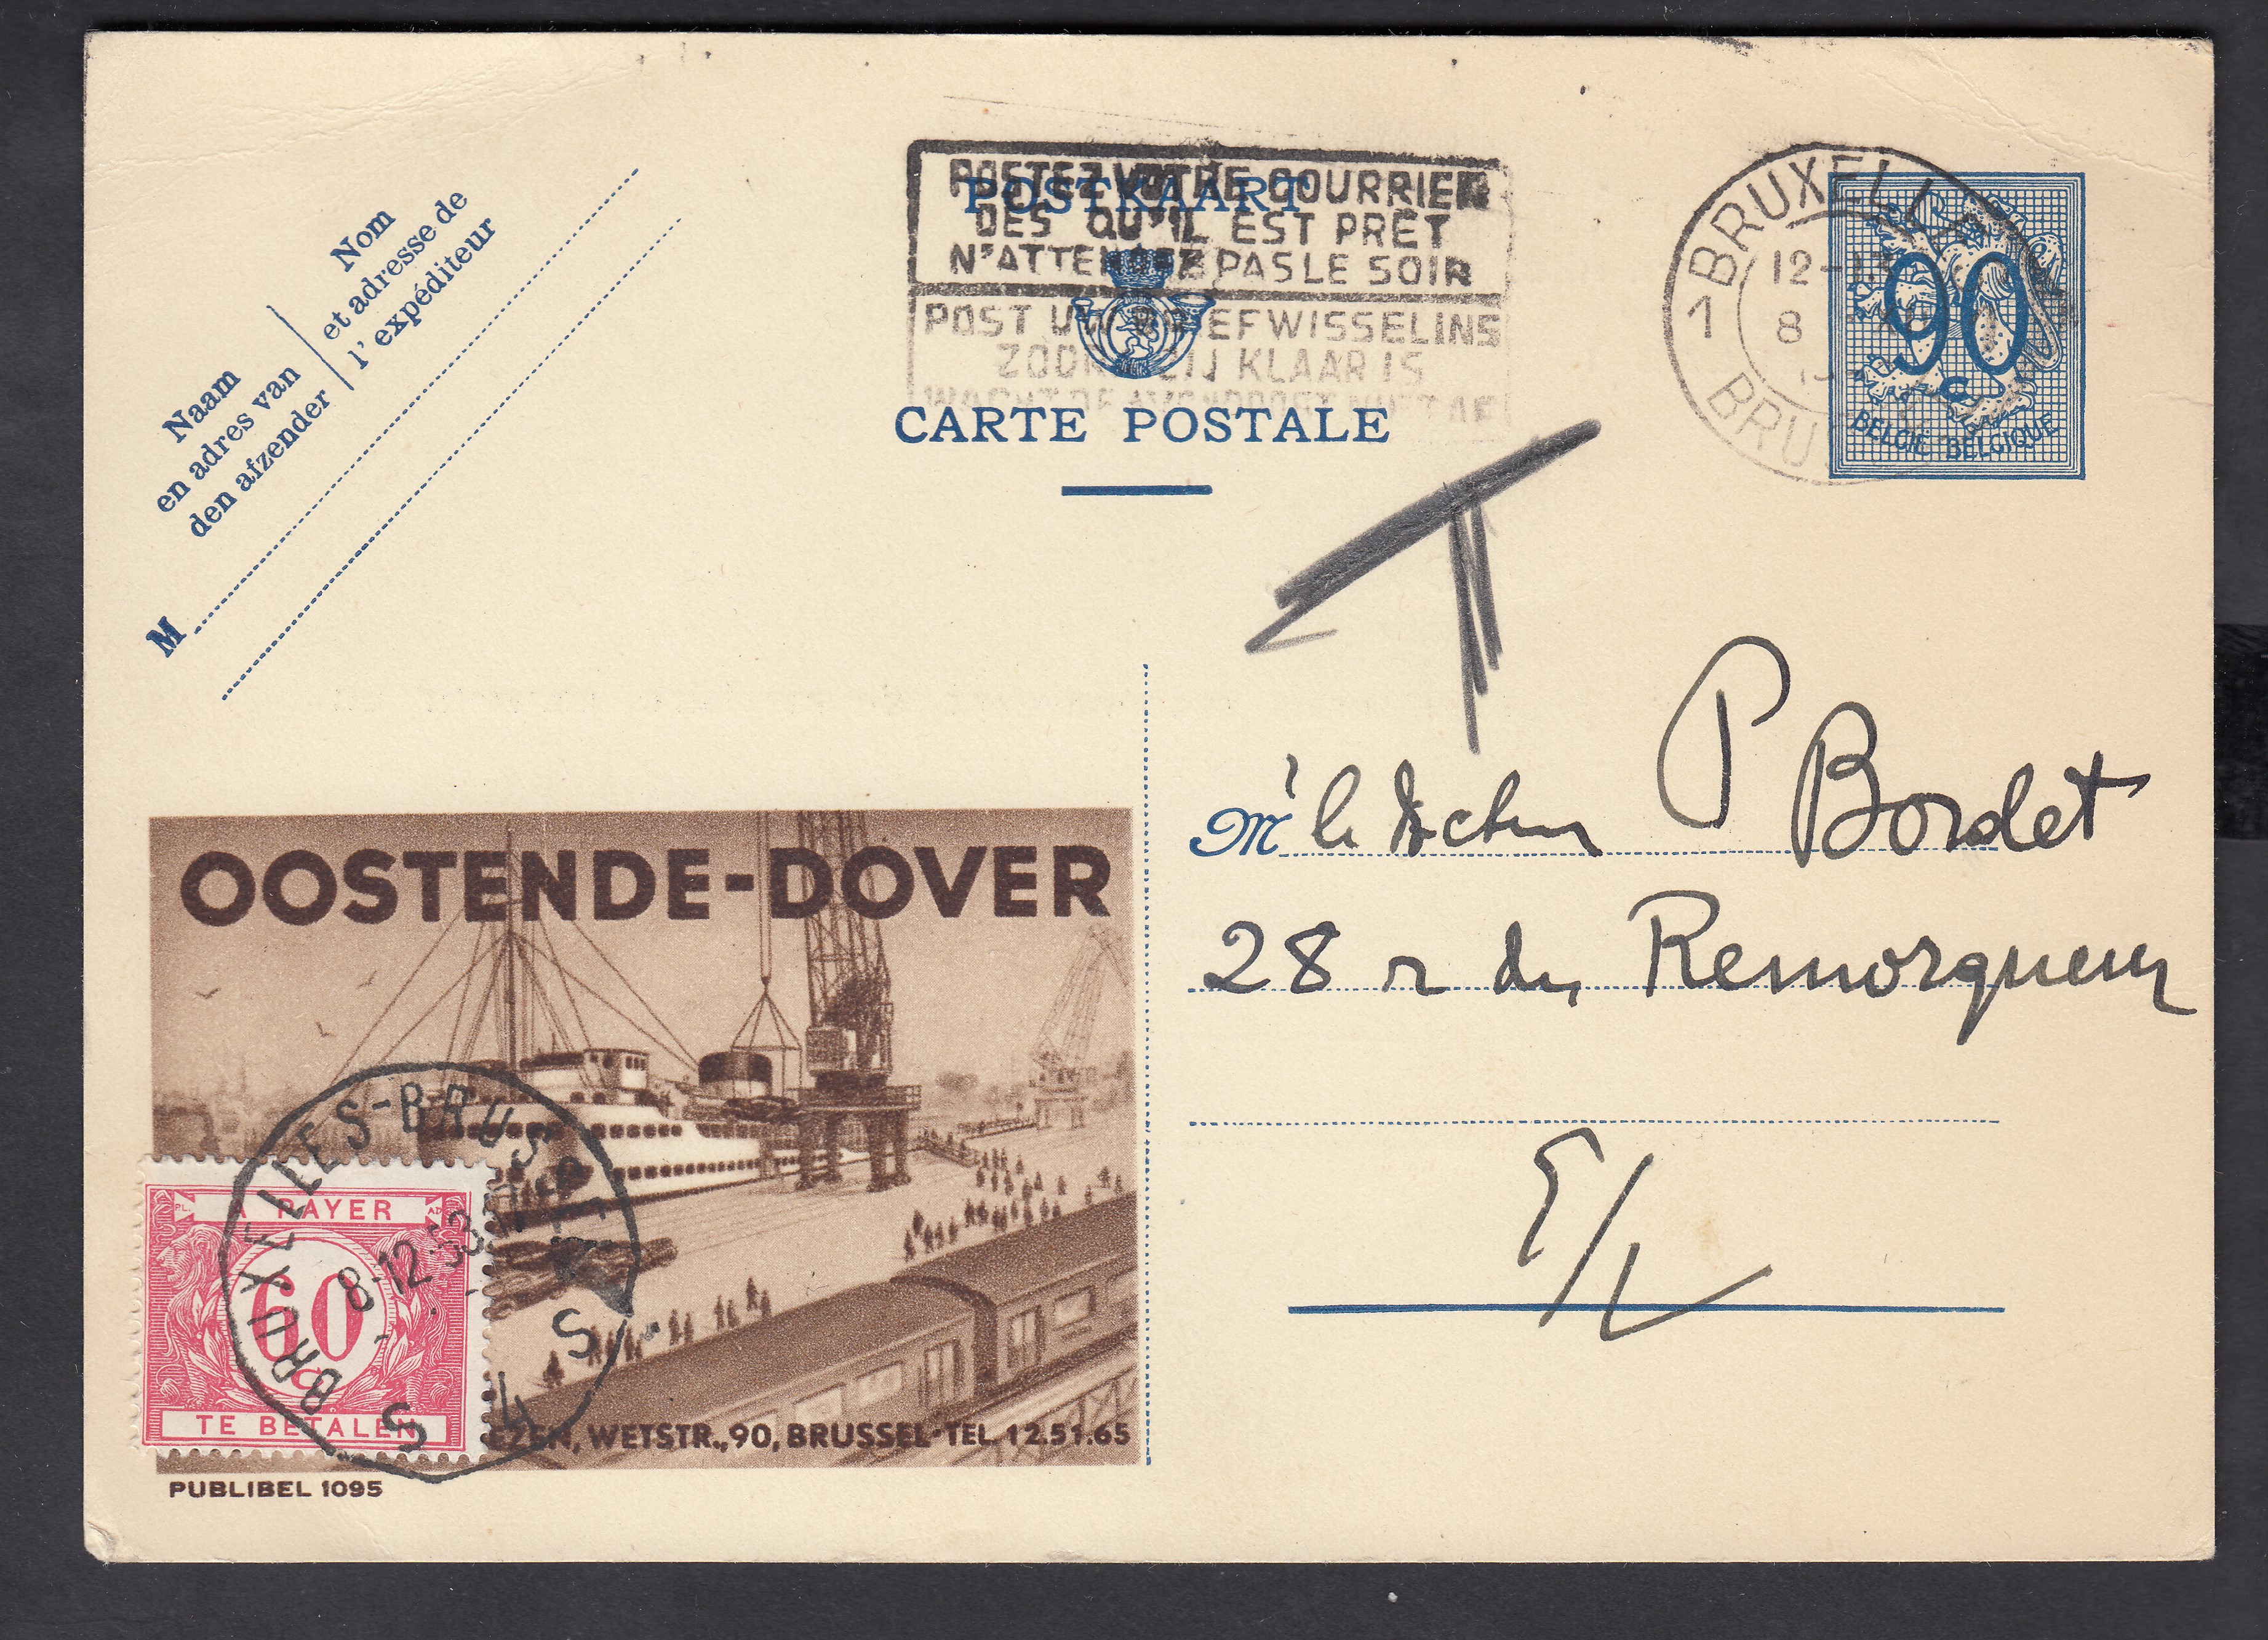 POSTEZ VOTRE COURRIER
DES QU'IL EST PRÊT
N'ATTENDEZ PAS LE SOIR
POSTKAART
POST UW BRIEFWISSELING
ZODRA ZIJ KLAAR IS
CARTE POSTALE
1 BRUXELLES
12-
8
BRU
90 c
BELGIË BELGIQUE
Nom
et adresse de
l'expéditeur
Naam
en adres van
den afzender
M
T
Mr le Docteur P Bordet
28 r du Remorqueur
E/V
OOSTENDE-DOVER
EZEN, WETSTR., 90, BRUSSEL-TEL. 12.51.65
PUBLIBEL 1095
A PAYER
60 c
TE BETALEN
BRUXELLES-BRUSSEL
8-12-53
S 4 S